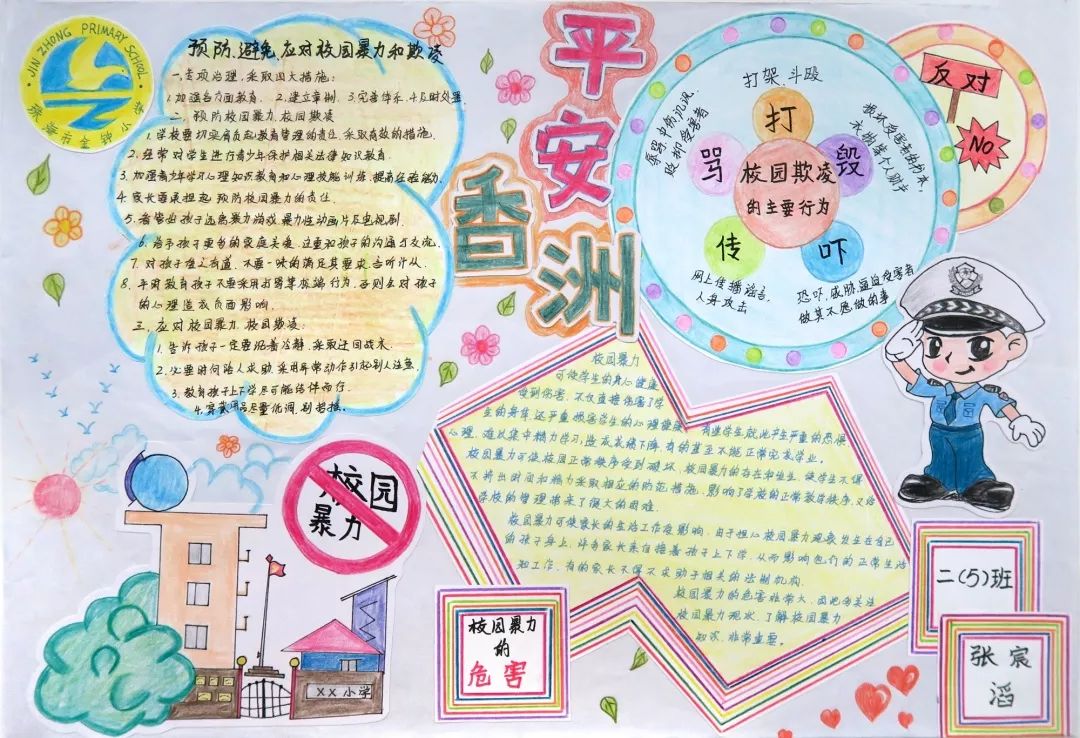 JIN ZHONG PRIMARY SCHOOL
珠海市金钟小学
预防、避免、应对校园暴力和欺凌
一、专项治理,采取四大措施:
1.加强各方面教育. 2.建立章制. 3.完善体系. 4.及时处置.
二、预防校园暴力、校园欺凌
1.学校要切实肩负起教育管理的责任,采取有效的措施.
2.经常对学生进行青少年保护相关法律知识教育.
3.加强青少年学习心理知识教育和心理技能训练,提高经验能力.
4.家长要承担起预防校园暴力的责任.
5.看管出孩子远离暴力游戏、暴力性动画片及电视剧.
6.给予孩子更多的家庭关爱,注重和孩子的沟通与交流.
7.对孩子准之有道,不要一味的满足其要求、言听计从.
8.平周教育孩子不要采用打骂等极端行为,否则会对孩子
的心理造成负面影响.
三、应对校园暴力、校园欺凌:
1.告诉孩子一定要沉着冷静.采取迂回战术.
2.必要时向路人求救,采用异常动作引起别人注意.
3.教育孩子上下学尽可能结伴而行.
4.穿戴用品尽量低调,别招摇.
平安
香洲
打架、斗殴
打
辱骂、中伤、讥讽、
贬抑受害者
骂
损坏受害者的书本、
衣物等个人财产
毁
校园欺凌
的主要行为
传
网上传播谣言、
人身攻击
吓
恐吓、威胁、逼迫受害者
做其不愿做的事
反对
NO
校园暴力
可使学生的身心健康
受到伤害,不仅直接伤害了学
生的身体,还严重损害学生的心理健康
心理,难以集中精力学习,造成成绩下降,有的甚至不能正常完成学业。
校园暴力可使校园正常秩序受到破坏,校园暴力的存在和发生,使学生不得
不抽出时间和精力采取相应的防范措施,影响了学校的正常教学秩序,又给
学校的管理带来了很大的困难。
校园暴力可使家长的生活工作受影响,由于担心校园暴力现象发生在自己
的孩子身上,许多家长亲自接着孩子上下学,从而影响他们的正常生活
和工作,有的家长不得不求助于相关的法制机构。
校园暴力的危害非常大,因此多关注
校园暴力现状,了解校园暴力
知识,非常重要。
校园
暴力
XX小学
校园暴力
的
危害
二(5)班
张宸
滔